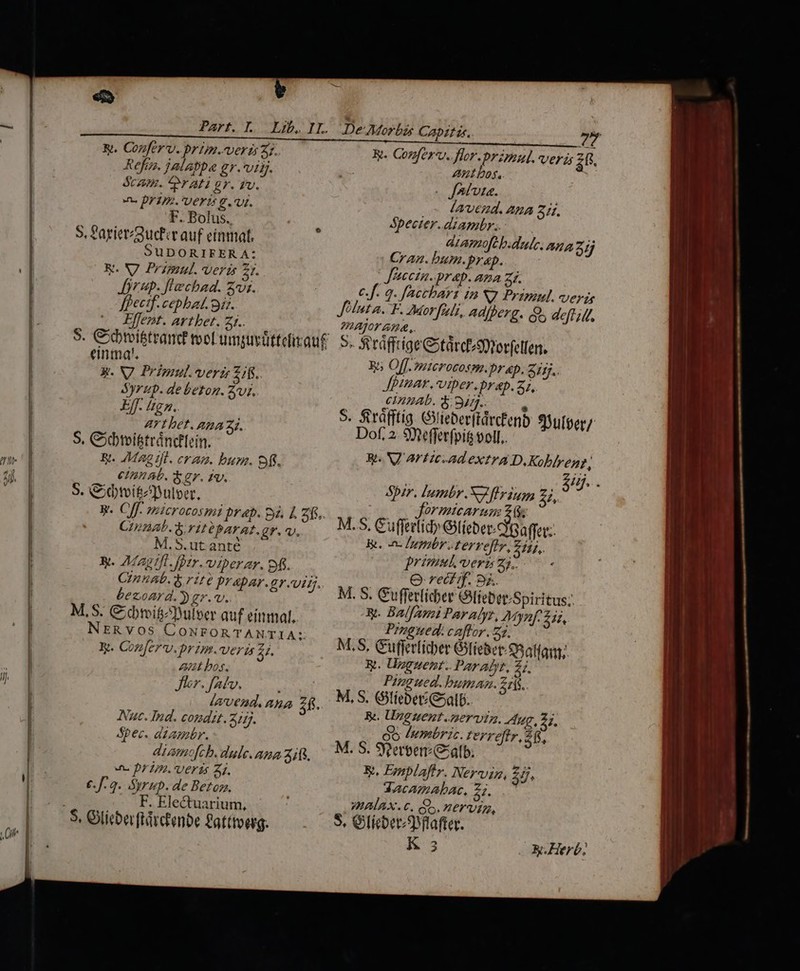 Part. I. Lib. II. De Morbis Capitis. 77
℞. Conserv. prim. veris ʒi.
Resin. jalappæ gr. viij.
Scam. ♀rati gr. iv.
prim. veris g. vi.
F. Bolus.
S. Laxier-Zucker auf einmal.
SUDORIFERA:
℞. ▽ Primul. veris ℥i.
syrup. stœchad. ʒvi.
specif. cephal. ℈ii.
Essent. arthet. ʒi.
S. Schwitztranck wol umzurütteln auf
einmal.
℞. ▽ Primul. veris ℥iß.
Syrup. de beton. ʒvi.
Ess. lign.
arthet. ana ʒi.
S. Schwitzträncklein.
℞. Magist. cran. hum. ℈ß.
cinnab. ♁ gr. iv.
S. Schwitz-Pulver.
℞. Off. microcosmi præp. ℈i. l. ʒß.
Cinnab. ♁ ritè parat. gr. v.
M. S. ut antè
℞. Magist. spir. viperar. ℈ß.
Cinnab. ♁ rite præpar. gr. viij.
bezoard. ☽ gr. v.
M. S. Schwitz-Pulver auf einmal.
NERVOS CONFORTANTIA:
℞. Conserv. prim. veris ℥i.
anthos.
flor. salv.
lavend. ana ℥ß.
Nuc. Ind. condit. ʒiij.
Spec. diambr.
diamosch. dulc. ana ʒiß.
prim. veris ʒi.
c. s. q. Syrup. de Beton.
F. Electuarium.
S. Gliederstärckende Lattwerg.
℞. Conserv. flor. primul. veris ℥ß.
anthos.
salviæ.
lavend. ana ʒii.
Specier. diambr.
diamosch. dulc. ana ʒij
Cran. hum. præp.
succin. præp. ana ʒi.
c. s. q. sacchari in ▽ Primul. veris
soluta. F. Morsuli, adsperg. destill.
majoranæ.
S. Kräfftige Stärck-Morsellen.
℞. Off. microcosm. præp. ʒiij.
spinar. viper. præp. ʒi.
cinnab. ♁ ℈ij.
S. Kräfftig Gliederstärckend Pulver/
Dos. 2 Messerspitz voll.
℞. ▽ artic. ad extra D. Kohlrent,
℥iij.
Spir. lumbr. ▽strium ℥i,
formicarum ℥ß
M. S. Eusserlich Glieder-Wasser.
℞. lumbr. terrestr. ʒiii.
primul. veris ʒi.
rectif. ℈i.
M. S. Eusserlicher Glieder-Spiritus.
℞. Balsami Paralyt. Mynf. ʒii,
Pingued. castor. ʒi.
M. S. Eusserlicher Glieder-Balsam.
℞. Unguent. Paralyt. ℥i.
Pingued. human. ʒiß.
M. S. Glieder-Salb.
℞. Unguent. nervin. Aug. ℥i.
lumbric. terrestr. ℥ß.
M. S. Nerven-Salb.
℞. Emplastr. Nervin. ℥ij.
Tacamahac. ℥i.
malax. c. nervin.
S. Glieder-Pflaster.
K 3 ℞. Herb.